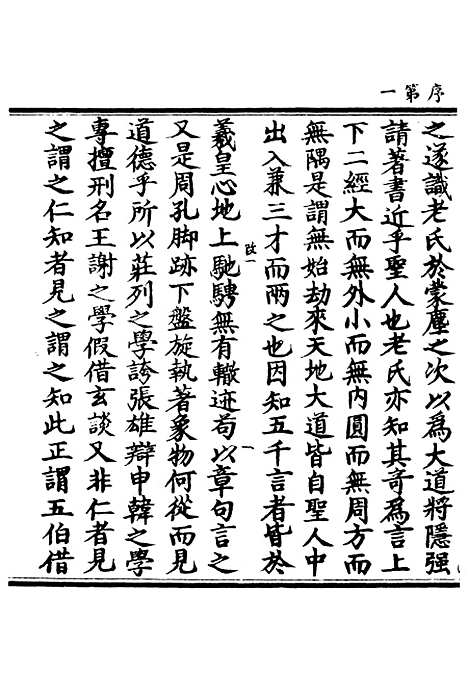 序第一
之遂識老氏於蒙塵之次以爲大道將隱强
請著書近乎聖人也老氏亦知其奇爲言上
下二經大而無外小而無内圓而無周方而
無隅是謂無始劫來天地大道皆自聖人中
出入兼三才而兩之也因知五千言者皆於
羲皇心地上馳騁無有轍迹苟以章句言之
又是周孔脚跡下盤旋執著象物何從而見
道德乎所以莊列之學誇張雄辯申韓之學
專擅刑名王謝之學假借玄談又非仁者見
之謂之仁知者見之謂之知此正謂五伯借
改一
一